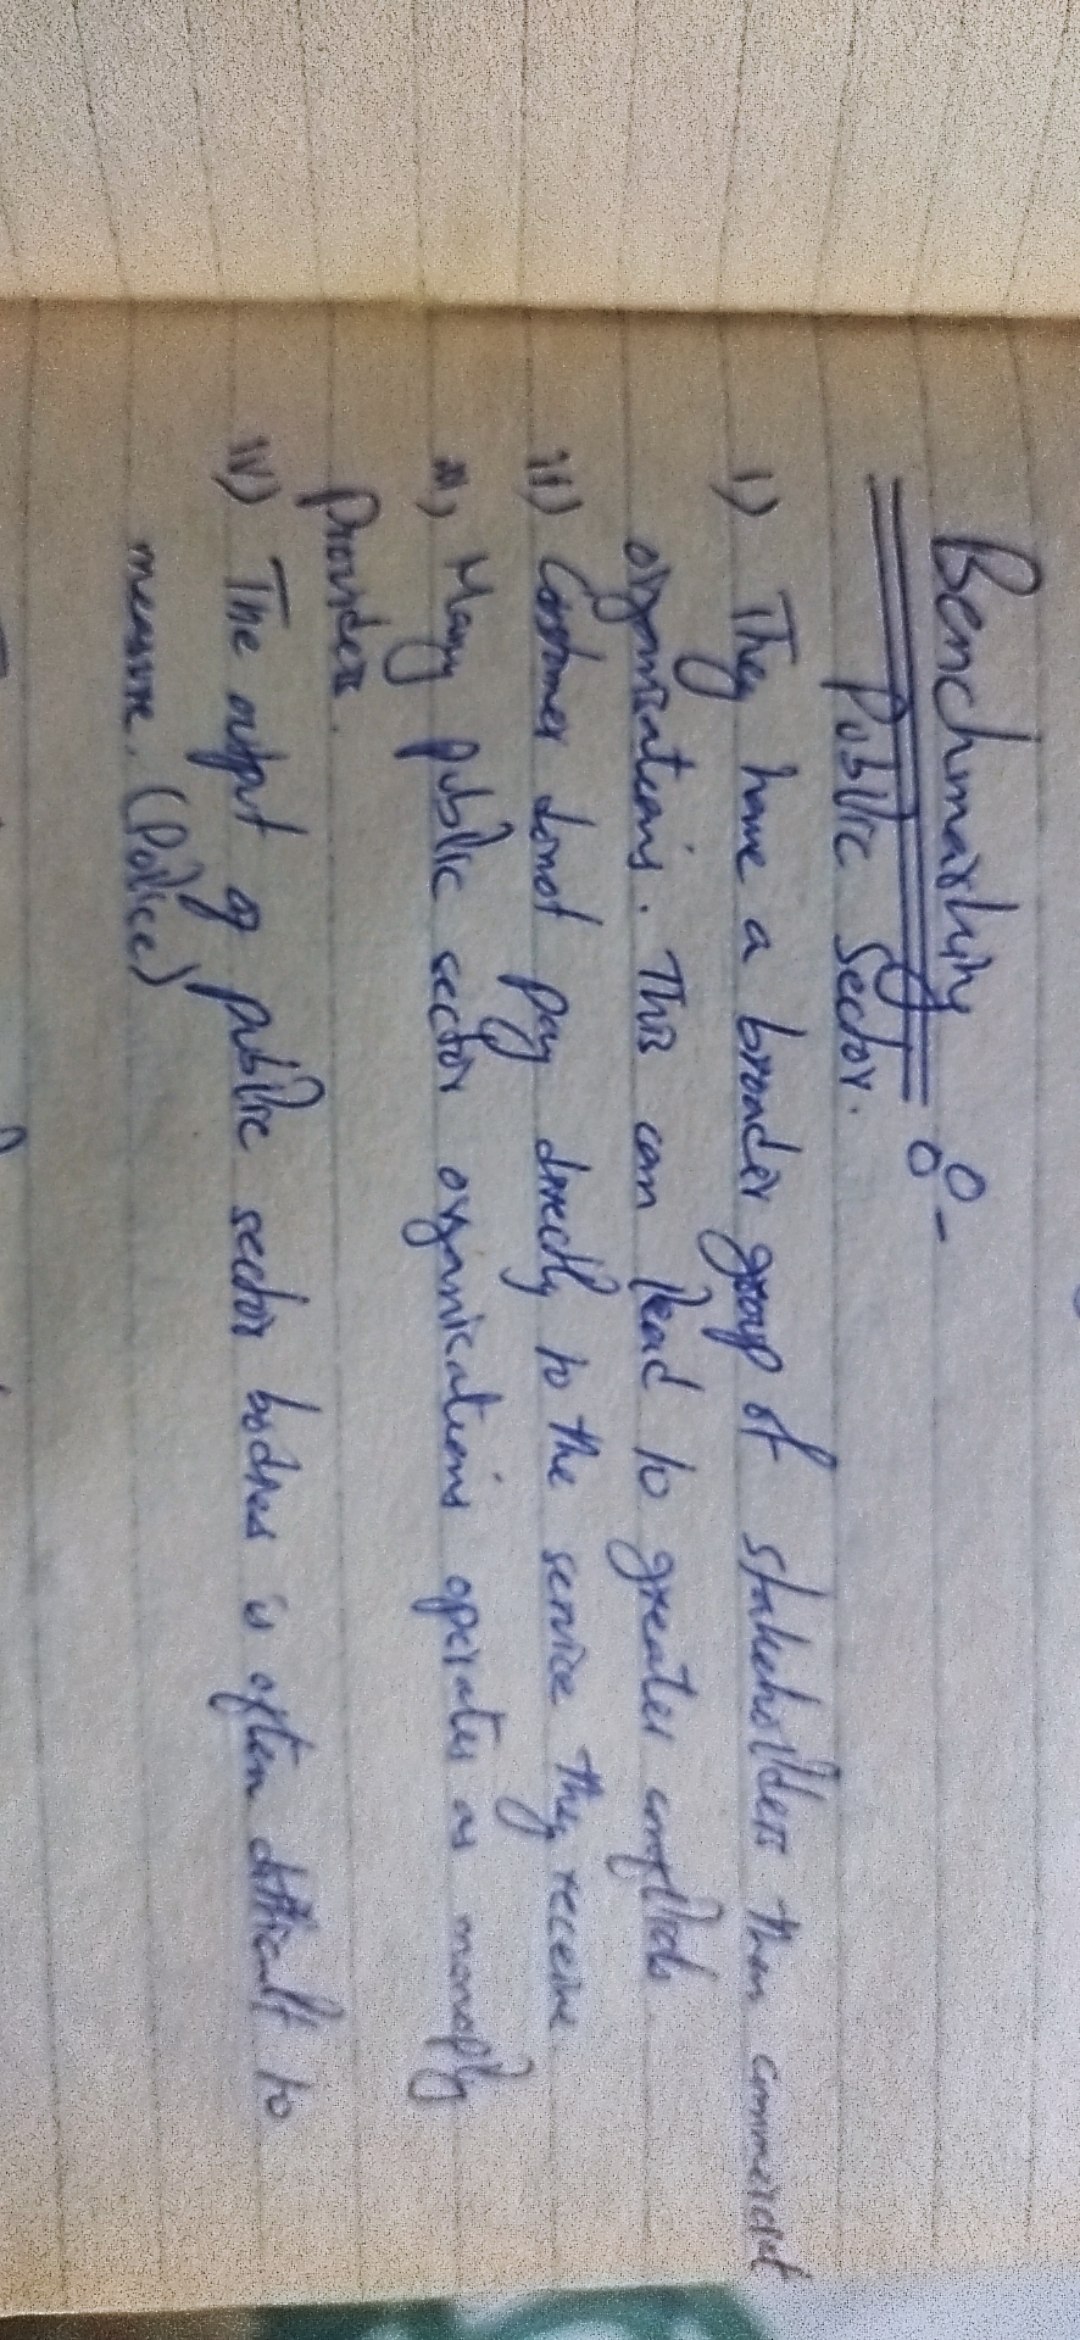 Benchmarking :-
Public Sector.
i) They have a broader group of stakeholders then commercial
organizations. This can lead to greater conflicts
ii) Customer donot pay directly to the service they receive.
iii) Many public sector organizations operates as monoply
Providers.
iv) The output of public sector bodies is often difficult to
measure. (Police)